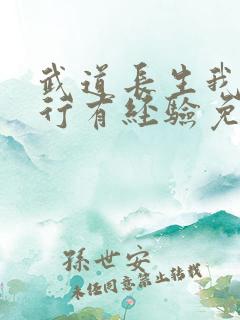 武道長生我
行有經驗免
孫世安
未經同意禁止轉載